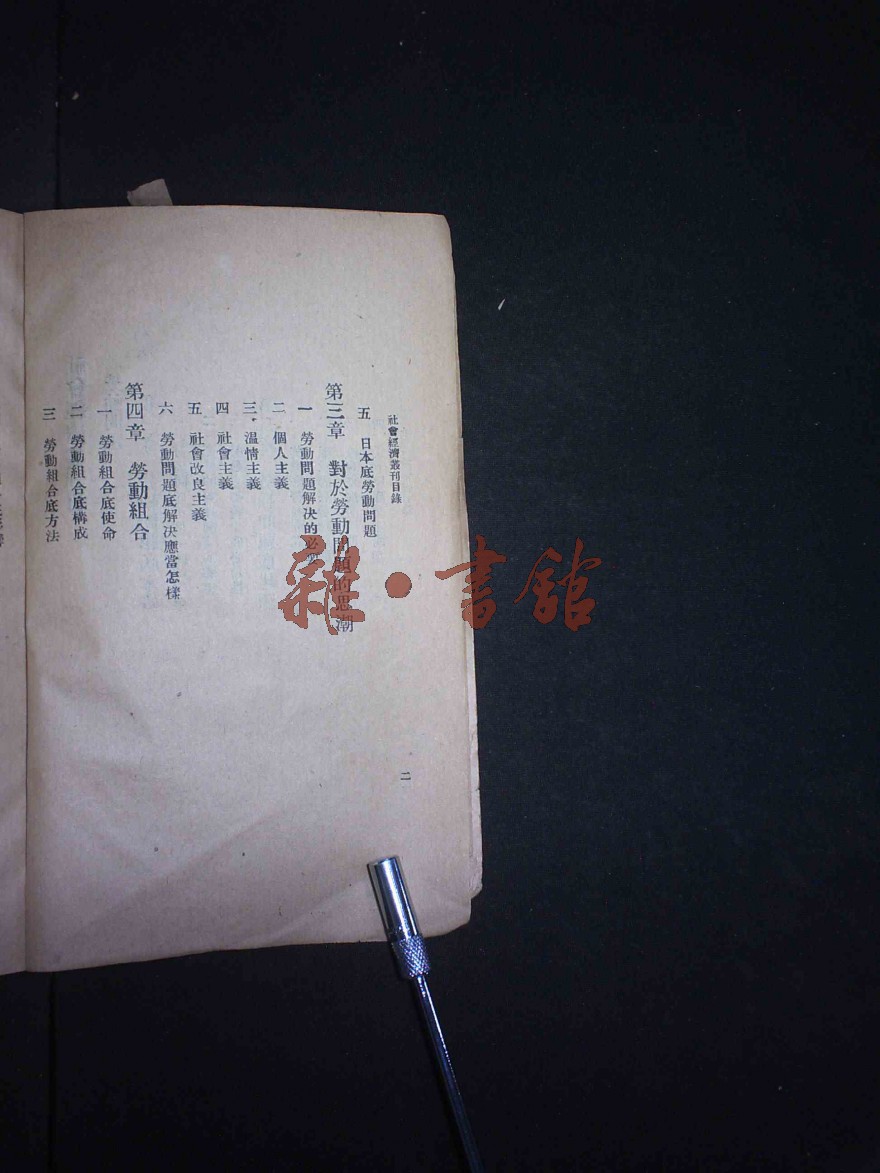 社會經濟叢刊目錄
二
五 日本底勞動問題
第三章 對於勞動問題的思潮
一 勞動問題解決的必
二 個人主義
三 溫情主義
四 社會主義
五 社會改良主義
六 勞動問題底解決應當怎樣
第四章 勞動組合
一 勞動組合底使命
二 勞動組合底構成
三 勞動組合底方法
雜·書館